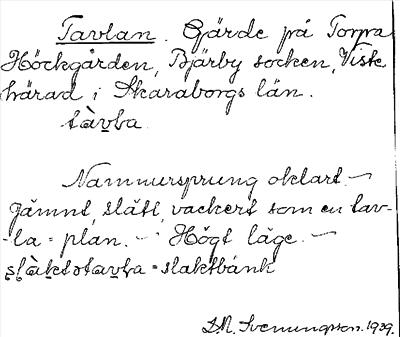 Tavlan. Gärde på Torpa
Höckgården, Bjärby socken, Viste
härad i Skaraborgs län.
tàvḷa
Namnursprung oklart. —
Jämnt, slätt, vackert som en tav-
-la = plan. — Högt läge. —
slàktotavḷa = slaktbänk
S.N. Svenungsson. 1939.